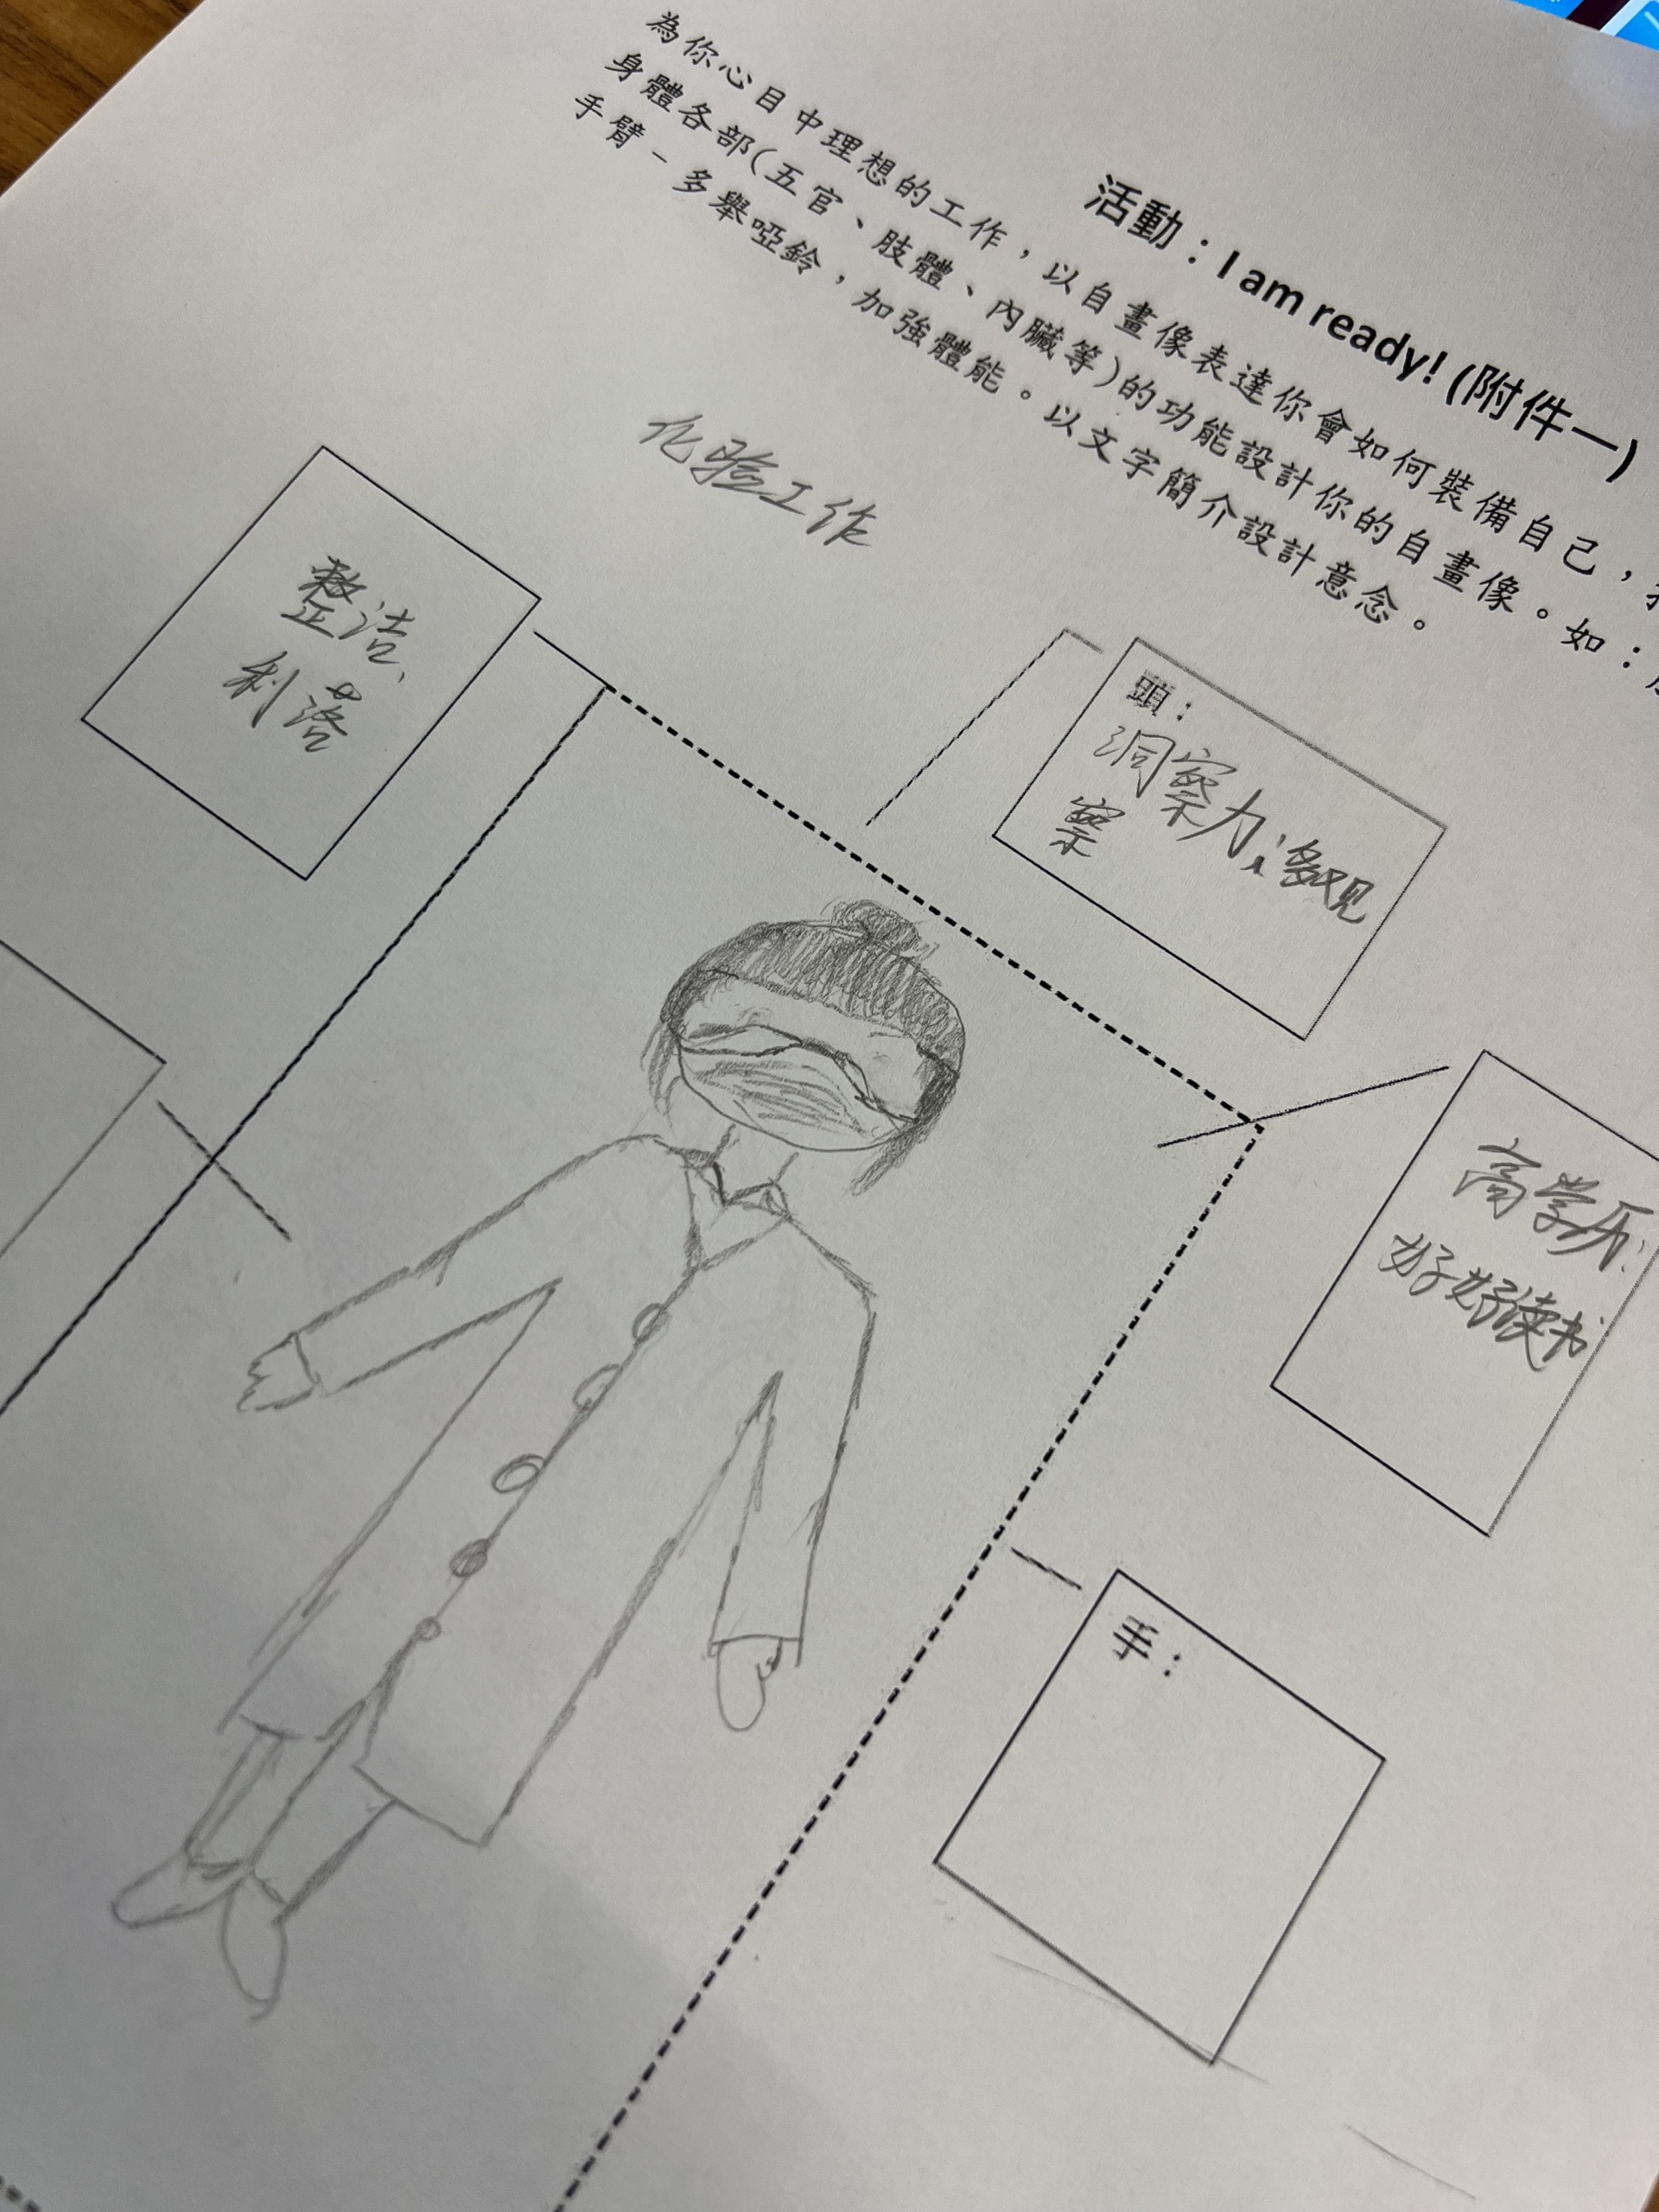 活動：I am ready! (附件一)
為你心目中理想的工作，以自畫像表達你會如何裝備自己，
身體各部(五官、肢體、內臟等)的功能設計你的自畫像。如：
手臂－多舉啞鈴，加強體能。以文字簡介設計意念。
化验工作
整洁、
利落
頭：
洞察力；多观
察
高学历：
好好读书
手：